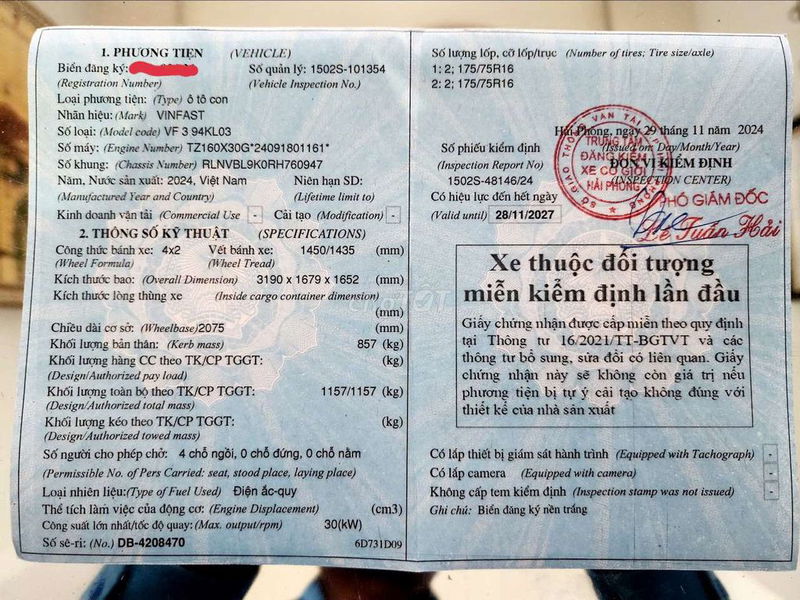 1. PHƯƠNG TIỆN (VEHICLE)
Biển đăng ký:
(Registration Number)
Số quản lý: 1502S-101354
(Vehicle Inspection No.)
Loại phương tiện: (Type) ô tô con
Nhãn hiệu: (Mark) VINFAST
Số loại: (Model code) VF 3 94KL03
Số máy: (Engine Number) TZ160X30G*24091801161*
Số khung: (Chassis Number) RLNVBL9K0RH760947
Năm, Nước sản xuất: 2024, Việt Nam
(Manufactured Year and Country)
Niên hạn SD:
(Lifetime limit to)
Kinh doanh vận tải (Commercial Use) - Cải tạo (Modification) -
2. THÔNG SỐ KỸ THUẬT (SPECIFICATIONS)
Công thức bánh xe: 4x2 Vết bánh xe: 1450/1435 (mm)
(Wheel Formula) (Wheel Tread)
Kích thước bao: (Overall Dimension) 3190 x 1679 x 1652 (mm)
Kích thước lòng thùng xe (Inside cargo container dimension)
(mm)
Chiều dài cơ sở: (Wheelbase) 2075 (mm)
Khối lượng bản thân: (Kerb mass) 857 (kg)
Khối lượng hàng CC theo TK/CP TGGT: (kg)
(Design/Authorized pay load)
Khối lượng toàn bộ theo TK/CP TGGT: 1157/1157 (kg)
(Design/Authorized total mass)
Khối lượng kéo theo TK/CP TGGT: (kg)
(Design/Authorized towed mass)
Số người cho phép chở: 4 chỗ ngồi, 0 chỗ đứng, 0 chỗ nằm
(Permissible No. of Pers Carried: seat, stood place, laying place)
Loại nhiên liệu:(Type of Fuel Used) Điện ắc-quy
Thể tích làm việc của động cơ: (Engine Displacement) (cm3)
Công suất lớn nhất/tốc độ quay: (Max. output/rpm) 30(kW)
Số sê-ri: (No.) DB-4208470 6D731D09
Số lượng lốp, cỡ lốp/trục (Number of tires; Tire size/axle)
1: 2; 175/75R16
2: 2; 175/75R16
Hải Phòng, ngày 29 tháng 11 năm 2024
(Issued on: Day/Month/Year)
Số phiếu kiểm định
(Inspection Report No)
1502S-48146/24
Có hiệu lực đến hết ngày
(Valid until) 28/11/2027
ĐƠN VỊ KIỂM ĐỊNH
(INSPECTION CENTER)
TRUNG TÂM
ĐĂNG KIỂM
XE CƠ GIỚI
HẢI PHÒNG
PHÓ GIÁM ĐỐC
Lê Tuấn Hải
Xe thuộc đối tượng
miễn kiểm định lần đầu
Giấy chứng nhận được cấp miễn theo quy định
tại Thông tư 16/2021/TT-BGTVT và các
thông tư bổ sung, sửa đổi có liên quan. Giấy
chứng nhận này sẽ không còn giá trị nếu
phương tiện bị tự ý cải tạo không đúng với
thiết kế của nhà sản xuất
Có lắp thiết bị giám sát hành trình (Equipped with Tachograph) -
Có lắp camera (Equipped with camera) -
Không cấp tem kiểm định (Inspection stamp was not issued) -
Ghi chú: Biển đăng ký nền trắng